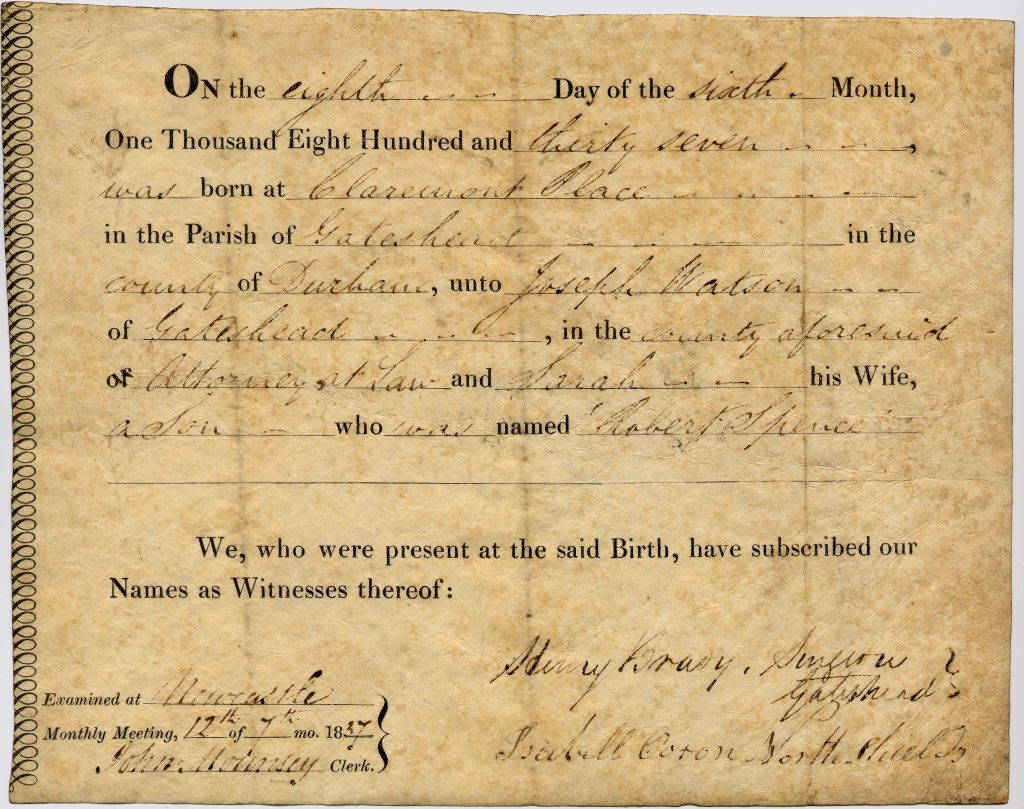 ON the eighth Day of the sixth Month,
One Thousand Eight Hundred and thirty seven,
was born at Claremont Place
in the Parish of Gateshead in the
county of Durham, unto Joseph Watson
of Gateshead, in the county aforesaid
of Attorney at Law and Sarah his Wife,
a Son who was named Robert Spence
We, who were present at the said Birth, have subscribed our
Names as Witnesses thereof:
Henry Brady, Surgeon
Gateshead
Isabell North Shields
Examined at Newcastle
Monthly Meeting, 12th of 7th mo. 1837
John Mounsey Clerk.